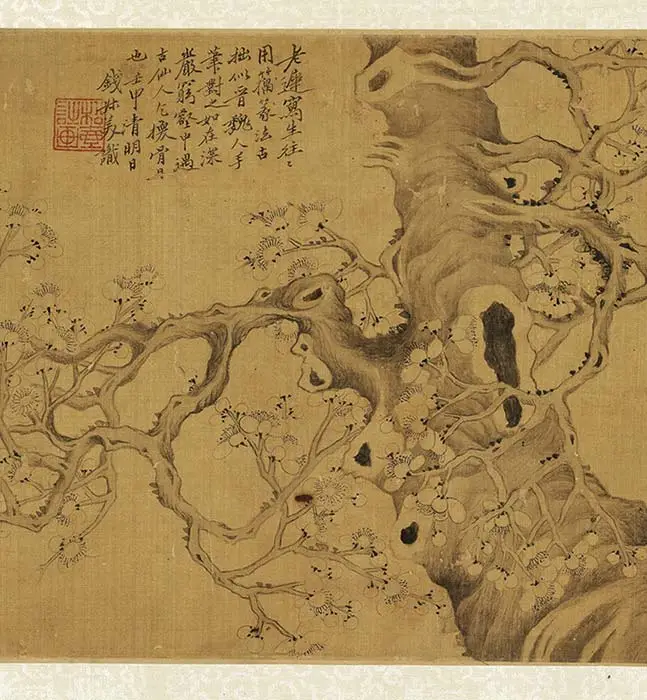 老遲寫生往〻
用籀篆法古
拙似晉魏人手
筆對之如在深
巖窮壑中遇
古仙人乞換骨具
也壬申清明日
錢叔美識